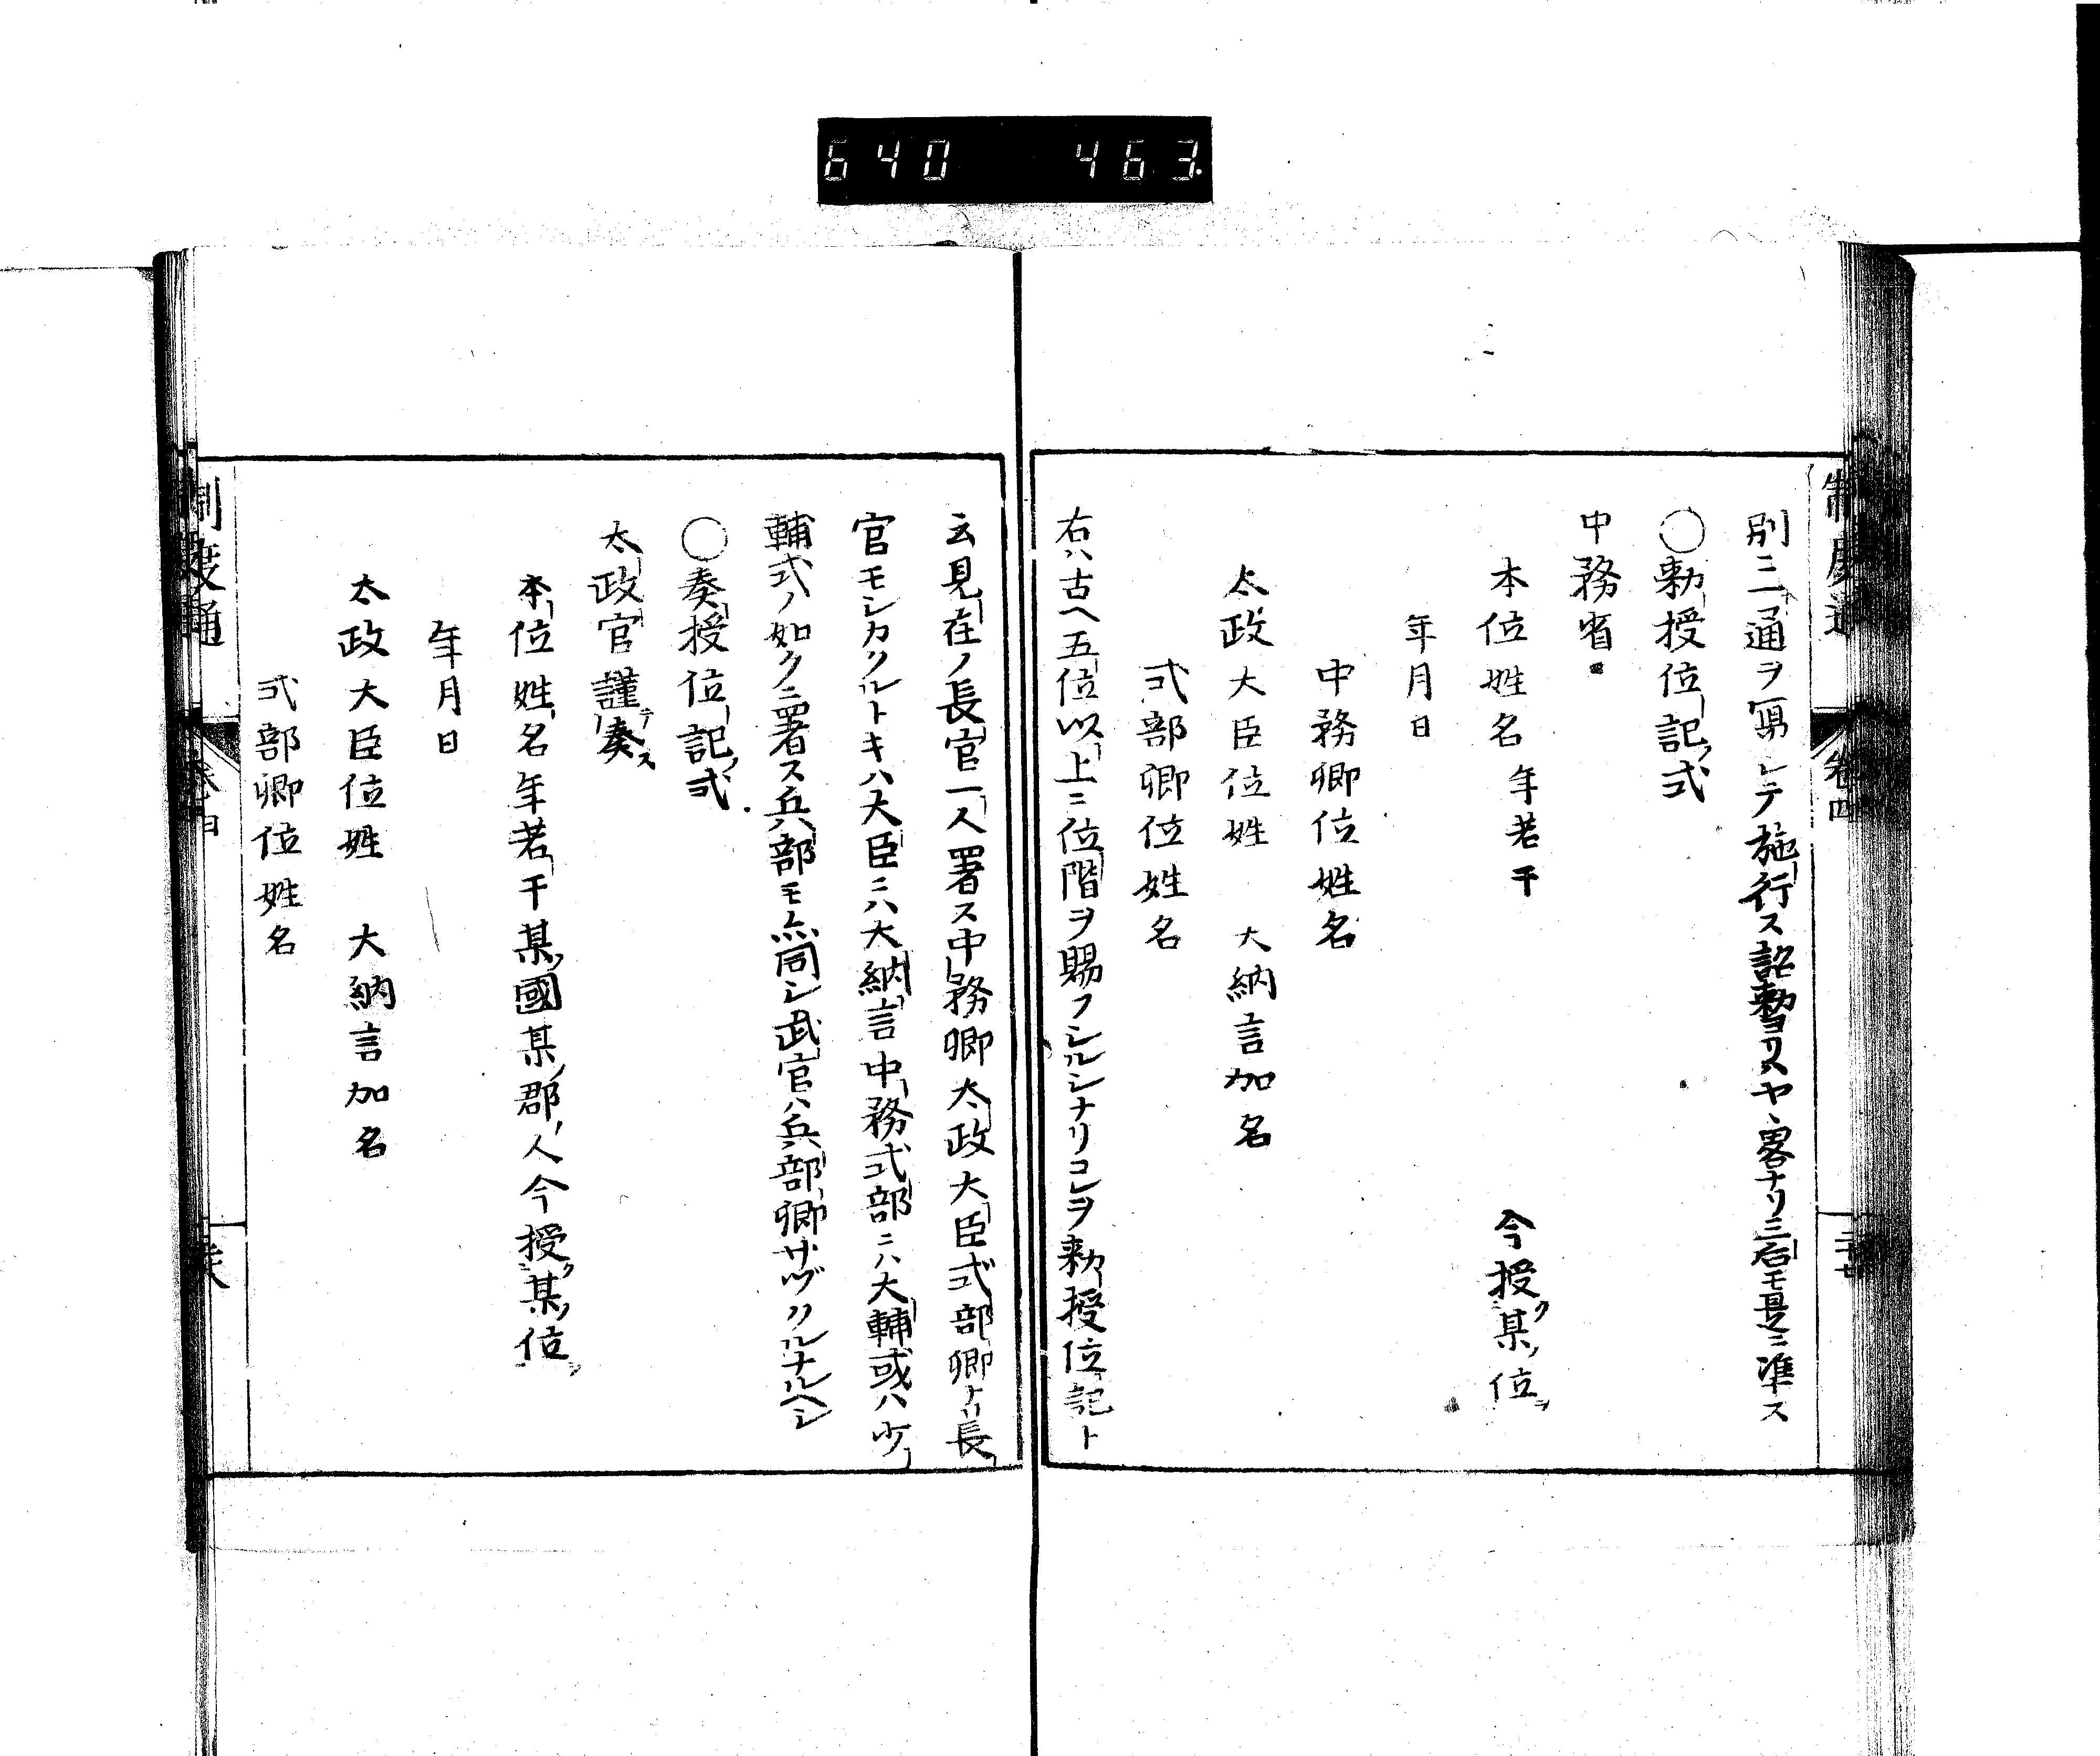 640 463
制度通 卷四 二十七
別ニ一通ヲ寫シテ施行ス詔勅ヨリスヤヽ畧ナリ三后モ是ニ准ス
○勅授位記ノ式
中務省
本位姓名年若干 今授クニ某ノ位ヲ
年月日
中務卿位姓名
太政大臣位姓 大納言加名
式部卿位姓名
右ハ古ヘ五位以上ニ位階ヲ賜フシルシナリコレヲ勅授位記ト
云見在ノ長官一人署ス中務卿太政大臣式部卿ナリ長
官モシカクルトキハ大臣ニハ大納言中務式部ニハ大輔或ハ少
輔式ノ如クニ署ス兵部モ亦同シ武官ハ兵部卿サヅクルナルヘシ
○奏授位記ノ式
太政官謹テ奏ス
本位姓名年若干某ノ國某ノ郡ノ人今授クニ某ノ位ヲ
年月日
太政大臣位姓 大納言加名
式部卿位姓名
制度通 卷四